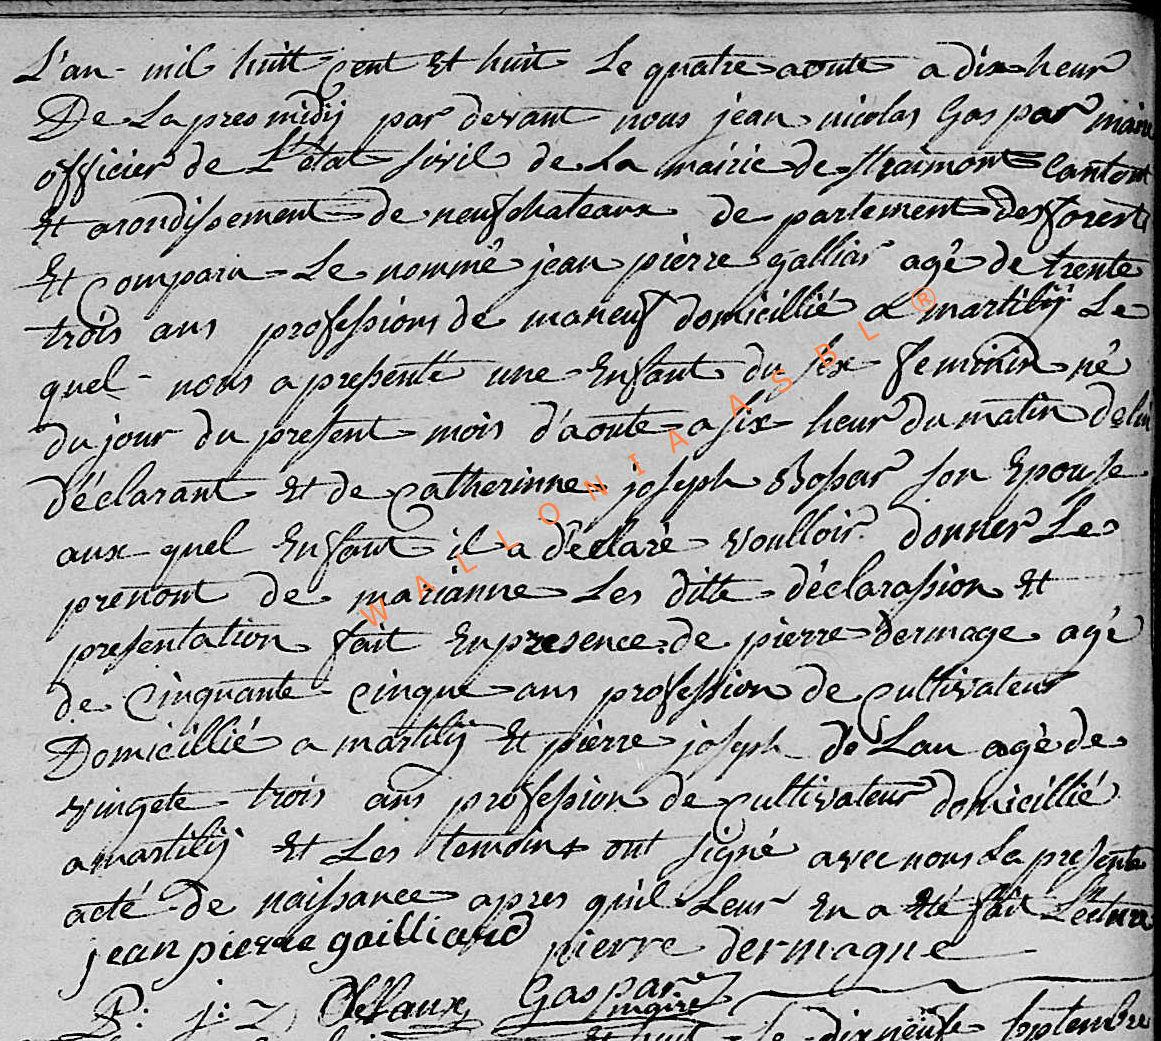 L'an mil huitt cent et huit Le quatre aoute a dix heur
De Lapres midij par devant nous jean nicolas Gaspar maire
officier de L'état sivil de La mairie de straimont Canton
Et arondissement de neufchateaux de partement des forest
Et comparu Le nommé jean pierre galliar agé de trente
trois ans professions de maneuf domicillié a martilij Le
quel nous a presenté une Enfant du sex feminin né
du jour du present mois d'aoute a six heur du matin de lui
déclarant et de Catherinne joseph Bosar son Epouse
aux quel Enfant il a déclaré voulloir donner Le
prenont de marianne Les ditte déclarassion et
presentation fait Enpresence de pierre dermage agé
de Cinquante cinque ans profession de cultivateur
Domicillié a martilij Et pierre joseph de Lau agé de
vingete trois ans profession de cultivateur domicillié
a martilij Et Les temoint ont signé avec nous La presente
acté de naissance apres quil Leur En a été fait Lecture
jean pierre gailliard pierre dermagne
P: j: Gaspar
maire
dixneufe septembre
WALLONIA ASBL ®